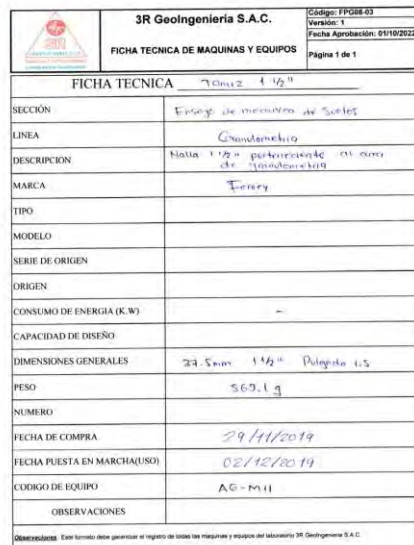 3R
3R GeoIngeniería S.A.C.
Código: FPG08-03
Versión: 1
Fecha Aprobación: 01/10/2022
FICHA TECNICA DE MAQUINAS Y EQUIPOS
Página 1 de 1
FICHA TECNICA Tamiz 1 1/2"
SECCIÓN Ensayo de mecanica de Suelos
LINEA Granulometria
DESCRIPCION Malla 1 1/2" perteneciente al area
de granulometria
MARCA
TIPO
MODELO
SERIE DE ORIGEN
ORIGEN
CONSUMO DE ENERGIA (K.W) -
CAPACIDAD DE DISEÑO
DIMENSIONES GENERALES 37.5mm 1 1/2" Pulgada 1.5
PESO 569.1 g
NUMERO
FECHA DE COMPRA 29/11/2019
FECHA PUESTA EN MARCHA(USO) 02/12/2019
CODIGO DE EQUIPO AG-M11
OBSERVACIONES
Observaciones: Este formato debe garantizar el registro de todas las maquinas y equipos del laboratorio 3R GeoIngenieria S.A.C.